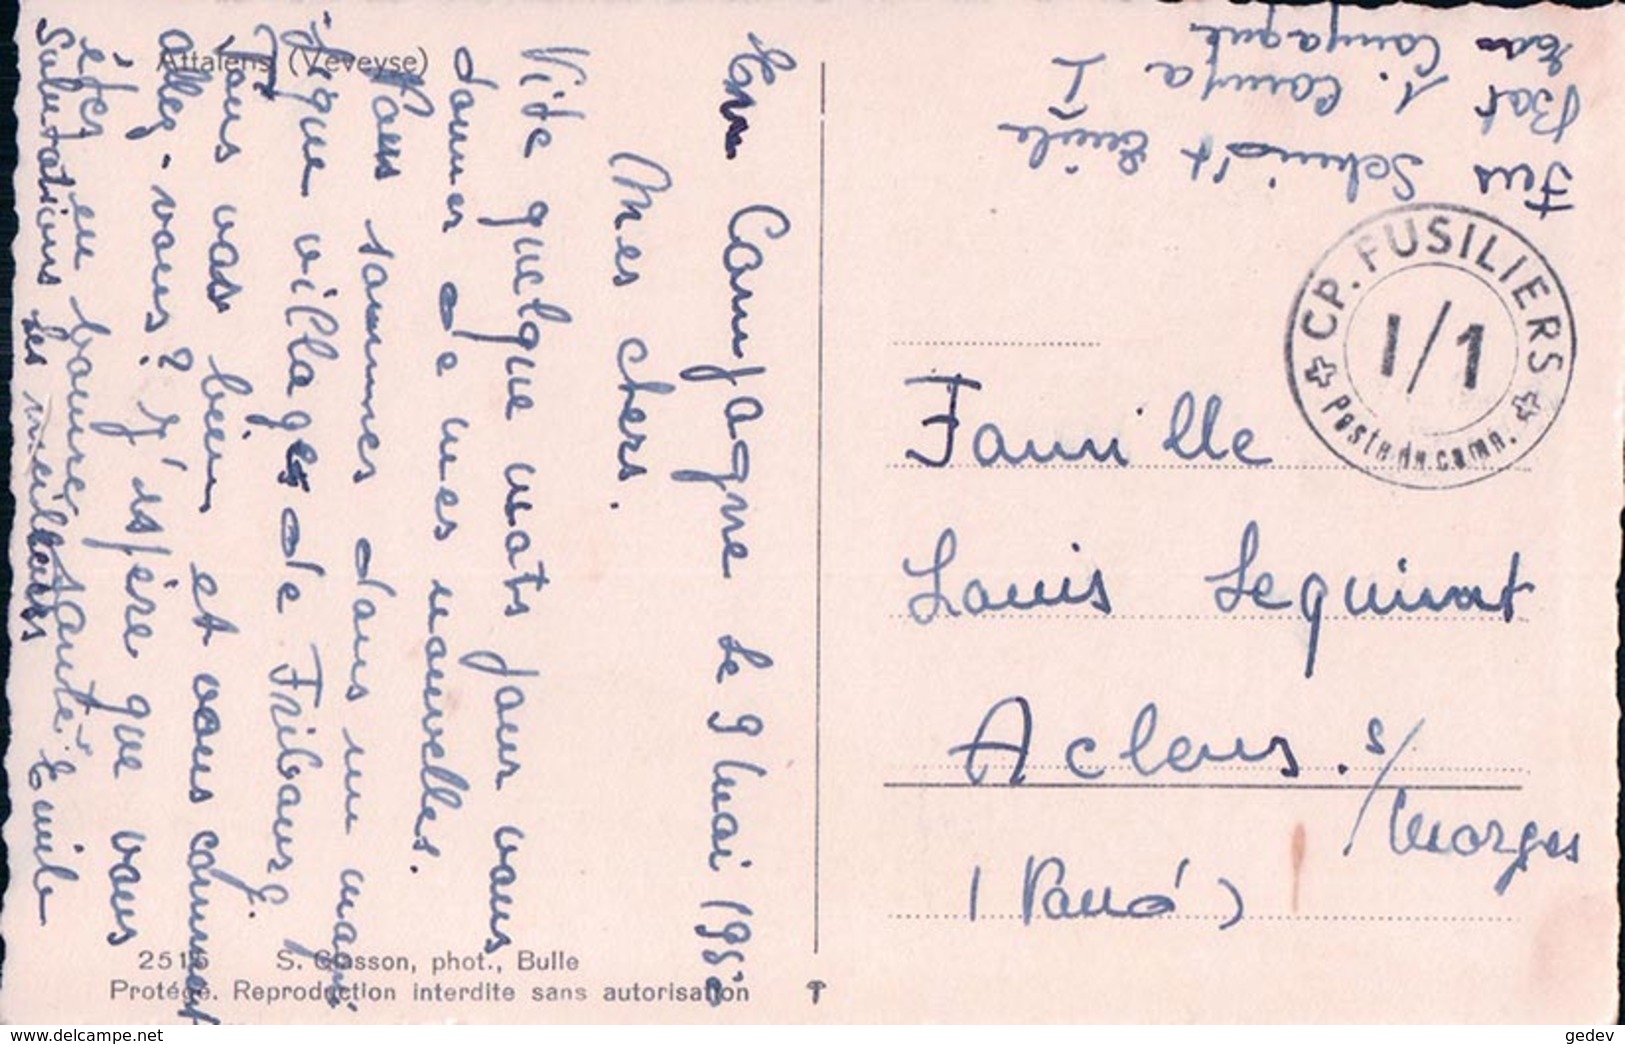 Attalens (Veveyse)
En Campagne le 9 Mai 1952
Mes chers.
Vite quelque mots pour vous
donner de mes nouvelles.
Nous sommes dans un magni
fique villages de Fribourg.
Tous vas bien et vous comment
allez-vous? J'espère que vous
êtes en bonne santé.
Salutations les meilleurs Emile
2515 S. Glasson, phot., Bulle
Protégé. Reproduction interdite sans autorisation
Fus Schmidt Emile
Bat 1. Comp I
En Campagne
CP. FUSILIERS
I/1
Poste de camp.
Famille
Louis Lequint
Aclens. s/
Morges
(Vaud)
gedev
delcampe.net